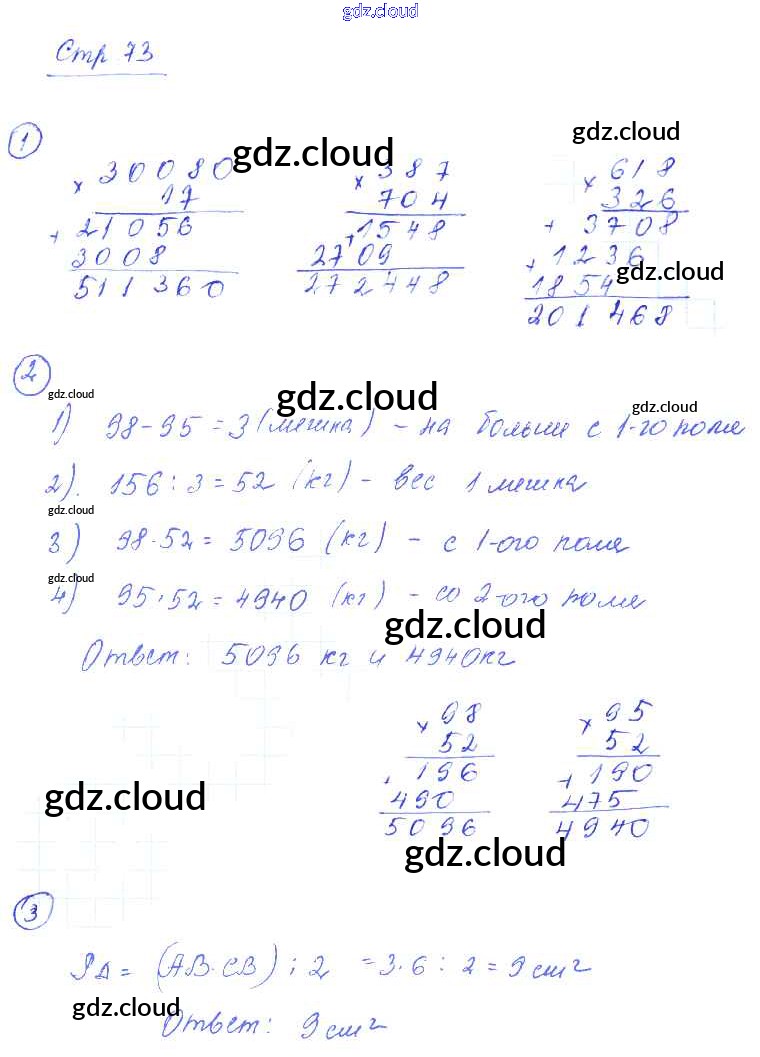 gdz.cloud
Стр 73
1
gdz.cloud gdz.cloud
× 30080 × 387 × 618
17 704 326
+ 21056 + 1548 + 3708
3008 2709 + 1236
gdz.cloud
511360 272448 1854
201468
2
gdz.cloud gdz.cloud gdz.cloud
1) 98-95=3 (мешка) - на больше с 1-го поля
2). 156:3=52 (кг) - вес 1 мешка
gdz.cloud
3) 98·52=5096 (кг) - с 1-ого поля
gdz.cloud
4) 95·52=4940 (кг) - со 2-ого поля
gdz.cloud
Ответ: 5096 кг и 4940кг
× 98 × 95
52 52
+ 196 + 190
gdz.cloud
490 475
5096 4940
gdz.cloud
3
SΔ = (АВ·СВ) : 2 =3·6 : 2 = 9 см²
gdz.cloud
Ответ: 9 см²